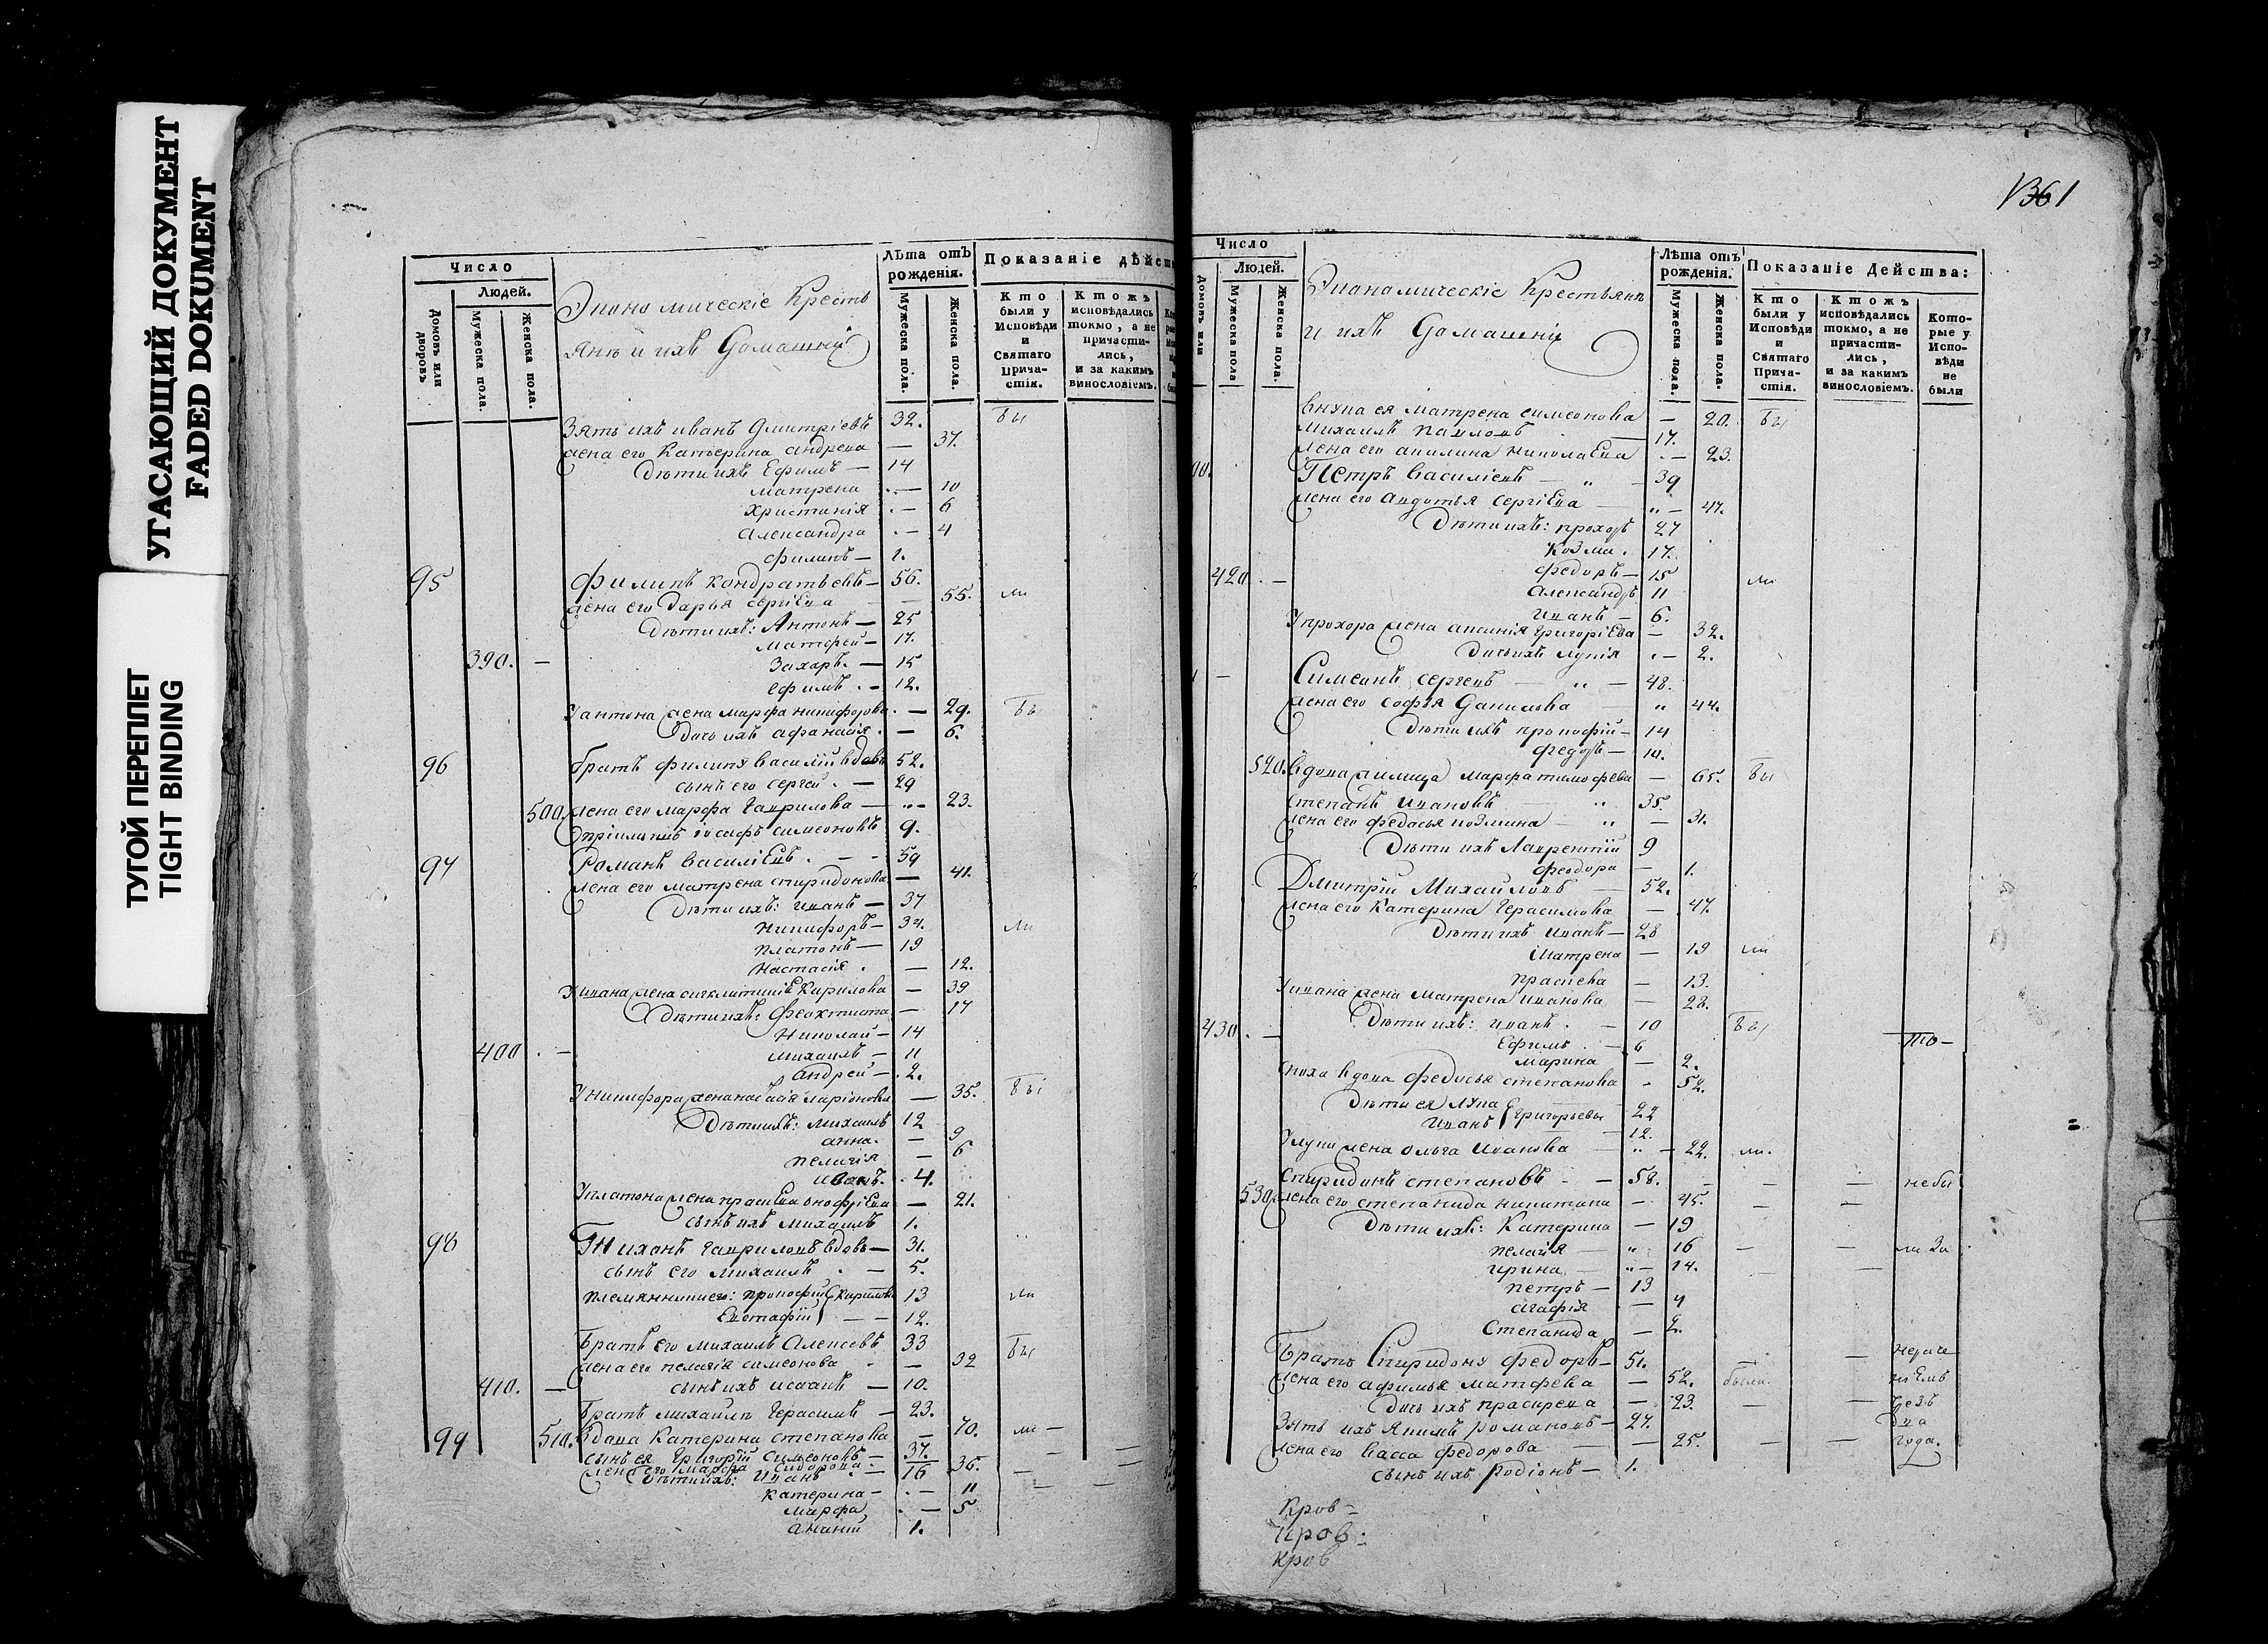 УГАСАЮЩИЙ ДОКУМЕНТ
FADED DOKUMENT
ТУГОЙ ПЕРЕПЛЕТ
TIGHT BINDING
Число
Людей.
Домовъ или дворовъ
Мужеска пола.
Женска пола.
Экономическіе Кресть
янъ и ихъ Домашніи
Лѣта отъ рожденія.
Мужеска пола.
Женска пола.
Показаніе дѣйств
Кто были у Исповѣди и Святаго Причастія.
Ктожъ исповѣдались токмо, а не причастились, и за какимъ винословіемъ.
Зять ихъ иванъ Дмитріевъ 32. бы
жена его Катерина андреева — 37.
Дѣти ихъ Ефимъ — 14
матрена — 10
христинія — 6
Александра — 4
филипъ — 1.
95 филипъ кондратьевъ — 56.
жена его Дарья сергіева — 55. ли
Дѣти ихъ: Антонъ — 25
матфей — 17.
390. — Захаръ — 15
ефимъ — 12.
У антона жена марфа никифорова — 29. бы
Дочь ихъ афанасія — 6.
96 братъ филипу василій вдовъ 52.
сынъ его сергей — 29
500. жена его марфа гаврилова — 23.
пріимышъ іосафъ симеоновъ 9.
97 Романъ василіевъ — 59
жена его матрена спиридонова — 41.
Дѣти ихъ: иванъ — 37
никифоръ — 34. ли
платонъ — 19
настасія — 12.
У ивана жена сигклитикія Кирилова — 39
Дѣти ихъ: Феоктиста — 17
николай — 14
400 — михаилъ — 11
андрей — 2.
У никифора жена настасія ларіонова — 35. бы
Дѣти ихъ: михаилъ 12
анна. — 9
пелагія — 6
иванъ. 4.
У платона жена прасковья онофріева — 21.
сынъ ихъ михаилъ 1.
98 Тиханъ гавриловъ вдовъ — 31.
сынъ его михаилъ — 5.
племянники его: прокофій Кириловы 13 ли
Евстафій — 12.
братъ его михаилъ Алексеевъ 33 бы
жена его пелагія симеонова — 32
410. — сынъ ихъ исаакъ — 10.
братъ михаила герасимъ — 23.
99 510. вдова Катерина степанова — 70. ли —
сынъ ея григорій симеоновъ — 37.
жена его марфа сидорова — 36.
Дѣти ихъ: иванъ — 16
катерина — 11
марфа — 5
ананій 1.
1361
Число
Людей.
Домовъ или
Мужеска пола
Женска пола.
Экономическіе Крестьянъ
и ихъ Домашніи
Лѣта отъ рожденія.
Мужеска пола.
Женска пола.
Показаніе Действа:
Кто были у Исповѣди и Святаго Причастія.
Ктожъ исповѣдались токмо, а не причастились, и за какимъ винословіемъ.
Которые у Исповѣди не были
внука ея матрена симеонова — 20. бы
михаилъ павловъ — 17.
жена его акилина николаева — 23.
00. Петръ василіевъ — 39
жена его авдотья сергіева — 47.
Дѣти ихъ: прохоръ 27
козма. 17.
420. — федоръ — 15 ли
Александръ 11
иванъ — 6.
У прохора жена аксинія григоріева — 32.
Дочь ихъ лукія — 2.
Симеонъ сергеевъ — 48.
жена его софья Данилова 44.
Дѣти ихъ прокофій — 14
федоръ — 10.
520. вдова жилица марфа тимофева — 65. бы
степанъ ивановъ 35.
жена его федосья козмина — 31.
Дѣти ихъ Лаврентій 9
феодора — 1.
Дмитрій Михайловъ 52.
жена его Катерина герасимова — 47.
Дѣти ихъ иванъ — 28
матрена — 19 ли
прасковья — 13.
У ивана жена матрена иванова — 28.
430. — Дѣти ихъ: иванъ — 10 бы
Ефимъ — 6 то —
марина — 2.
сноха вдова федосья степанова — 52.
Дѣти ея лука григорьевы 22
иванъ 12.
У луки жена ольга иванова — 22. ли.
спиридонъ степановъ — 58. — — небы
530. жена его степанида никитина — 45. — —
Дѣти ихъ: Катерина — 19
пелагія — 16 — — ли За
ирина — 14. —
петръ — 13
агафія — 4
Степанида — 2.
братъ Спиридону федоръ — 51. — нераче
жена его афимья матфеева — 52. были ніемъ
Дочь ихъ прасковья — 23. — — чезъ
Зять ихъ Якимъ романовъ — 27. два
жена его васса федорова — 25. — — года.
сынъ ихъ родіонъ — 1.
Кров —
иров:
кров